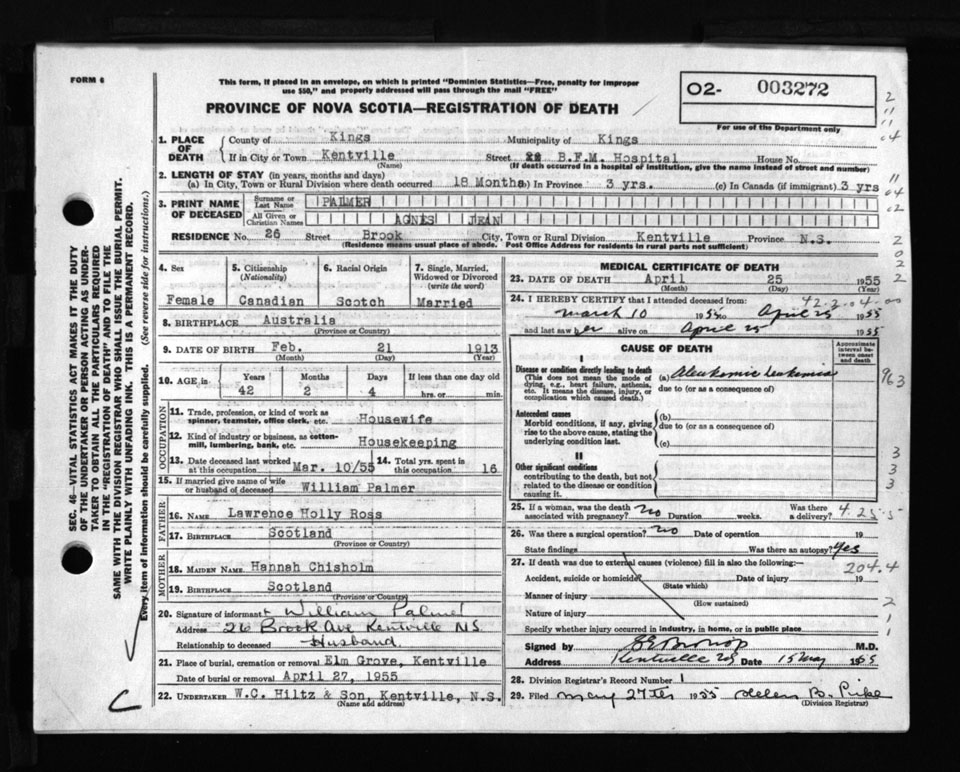 FORM 6
This form, if placed in an envelope, on which is printed "Dominion Statistics—Free, penalty for improper
use $50," and properly addressed will pass through the mail "FREE"
PROVINCE OF NOVA SCOTIA—REGISTRATION OF DEATH
O2- 003272
For use of the Department only
1. PLACE OF DEATH
County of Kings Municipality of Kings
If in City or Town Kentville Street B.F.M. Hospital House No.
(Name) (If death occurred in a hospital of institution, give the name instead of street and number)
2. LENGTH OF STAY (in years, months and days)
(a) In City, Town or Rural Division where death occurred 18 Months (b) In Province 3 yrs. (c) In Canada (if immigrant) 3 yrs
3. PRINT NAME OF DECEASED
Surname or Last Name PALMER
All Given or Christian Names AGNES JEAN
RESIDENCE No. 26 Street Brook City, Town or Rural Division Kentville Province N.S.
(Residence means usual place of abode. Post Office Address for residents in rural parts not sufficient)
4. Sex
Female
5. Citizenship (Nationality)
Canadian
6. Racial Origin
Scotch
7. Single, Married, Widowed or Divorced (write the word)
Married
8. BIRTHPLACE Australia
(Province or Country)
9. DATE OF BIRTH Feb. 21 1913
(Month) (Day) (Year)
10. AGE in Years Months Days If less than one day old
42 2 4 hrs. or min.
OCCUPATION
11. Trade, profession, or kind of work as
spinner, teamster, office clerk, etc. Housewife
12. Kind of industry or business, as cotton-
mill, lumbering, bank, etc. Housekeeping
13. Date deceased last worked
at this occupation Mar. 10/55
14. Total yrs. spent in
this occupation 16
15. If married give name of wife
or husband of deceased William Palmer
FATHER
16. NAME Lawrence Holly Ross
17. BIRTHPLACE Scotland
(Province or Country)
MOTHER
18. MAIDEN NAME Hannah Chisholm
19. BIRTHPLACE Scotland
(Province or Country)
20. Signature of informant William Palmer
Address 26 Brook Ave Kentville NS
Relationship to deceased Husband
21. Place of burial, cremation or removal Elm Grove, Kentville
Date of burial or removal April 27, 1955
22. UNDERTAKER W.C. Hiltz & Son, Kentville, N.S.
(Name and address)
MEDICAL CERTIFICATE OF DEATH
23. DATE OF DEATH April 25 1955
(Month) (Day) (Year)
42.2.04.00
24. I HEREBY CERTIFY that I attended deceased from:
March 10 1955 to April 25 1955
and last saw her alive on April 25 1955
CAUSE OF DEATH
Approximate interval between onset and death
I
Disease or condition directly leading to death
(This does not mean the mode of
dying, e.g., heart failure, asthenia,
etc. It means the disease, injury, or
complication which caused death.)
(a) Aleukemic leukemia
due to (or as a consequence of)
Antecedent causes
Morbid conditions, if any, giving
rise to the above cause, stating the
underlying condition last.
(b)
due to (or as a consequence of)
(c)
II
Other significant conditions
contributing to the death, but not
related to the disease or condition
causing it.
25. If a woman, was the death
associated with pregnancy? no Duration weeks. Was there a delivery?
4.25.5
26. Was there a surgical operation? no Date of operation 19
State findings Was there an autopsy? Yes
27. If death was due to external causes (violence) fill in also the following:—
204.4
Accident, suicide or homicide? Date of injury 19
(State which)
Manner of injury
(How sustained)
Nature of injury
Specify whether injury occurred in industry, in home, or in public place
Signed by M.D.
Address Kentville NS Date 15 May 1955
28. Division Registrar's Record Number 1
29. Filed May 27th 1955 Helen B. Pike
(Division Registrar)
SEC. 46—VITAL STATISTICS ACT MAKES IT THE DUTY
OF THE UNDERTAKER OR PERSON ACTING AS UNDER-
TAKER TO OBTAIN ALL THE PARTICULARS REQUIRED
IN THE "REGISTRATION OF DEATH" AND TO FILE THE
SAME WITH THE DIVISION REGISTRAR WHO SHALL ISSUE THE BURIAL PERMIT.
WRITE PLAINLY WITH UNFADING INK. THIS IS A PERMANENT RECORD.
Every item of information should be carefully supplied. (See reverse side for instructions.)